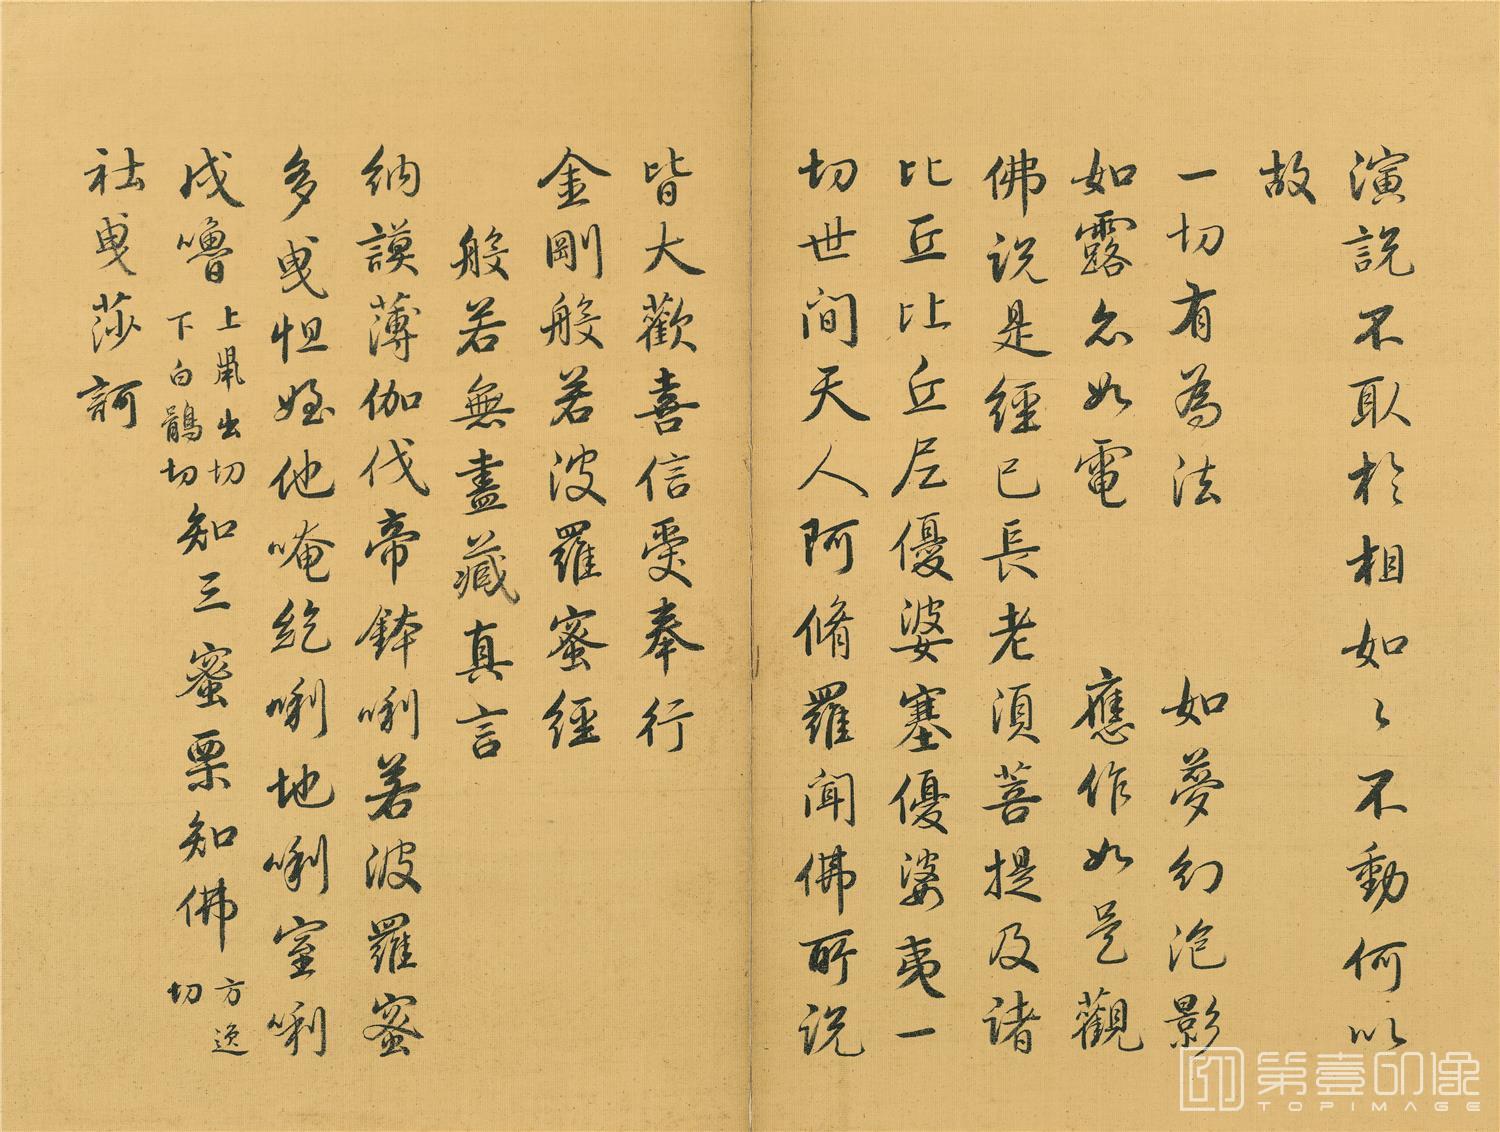 演說不取於相如〻不動何以
故
一切有為法 如夢幻泡影
如露亦如電 應作如是觀
佛説是經已長老須菩提及諸
比丘比丘尼優婆塞優婆夷一
切世間天人阿脩羅聞佛所説
皆大歡喜信受奉行
金剛般若波羅蜜經
般若無盡藏真言
納謨薄伽伐帝鉢唎若波羅蜜
多曳怛姪他唵紇唎地唎室唎
戍嚕 上 出切 下白鵑切 知三蜜栗知佛 方逸切
社曳莎訶
第壹印像
TOPIMAGE